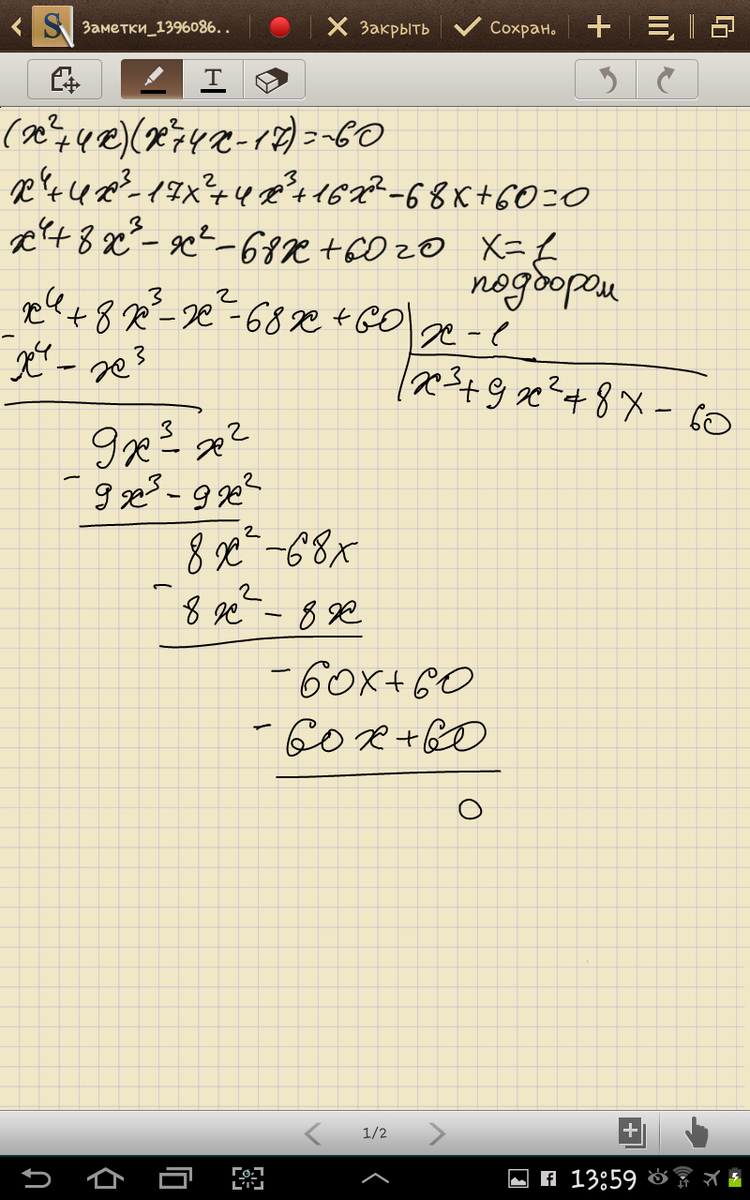 Заметки_1396086.. Закрыть Сохран.
T
(x²+4x)(x²+4x-17)=-60
x⁴+4x³-17x²+4x³+16x²-68x+60=0
x⁴+8x³-x²-68x+60=0 x=1
подбором
x⁴+8x³-x²-68x+60 | x-1
- x⁴-x³
x³+9x²+8x-60
9x³-x²
- 9x³-9x²
8x²-68x
- 8x²-8x
-60x+60
-60x+60
0
1/2
13:59